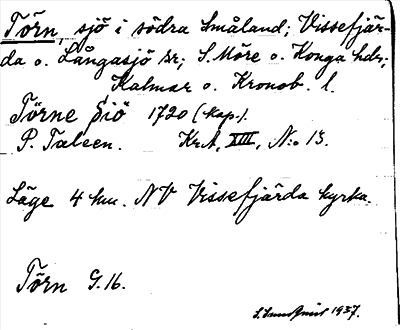 Törn, sjö i södra Småland; Vissefjär-
da o. Långasjö sr; S. Möre o. Konga hdr;
Kalmar o. Kronob. l.
Törne Siö 1720 (kop.).
P. Taleen. Kr.A, XIII, N:o 13.
Läge 4 km. NV Vissefjärda kyrka.
Törn G. 16.
1937.